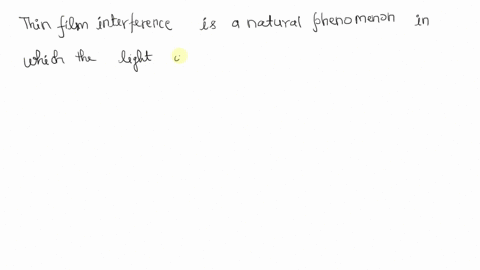 Thin film interference is a natural phenomenon in
which the light